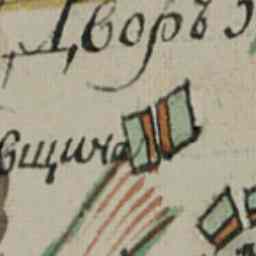 Дворъ
вщича